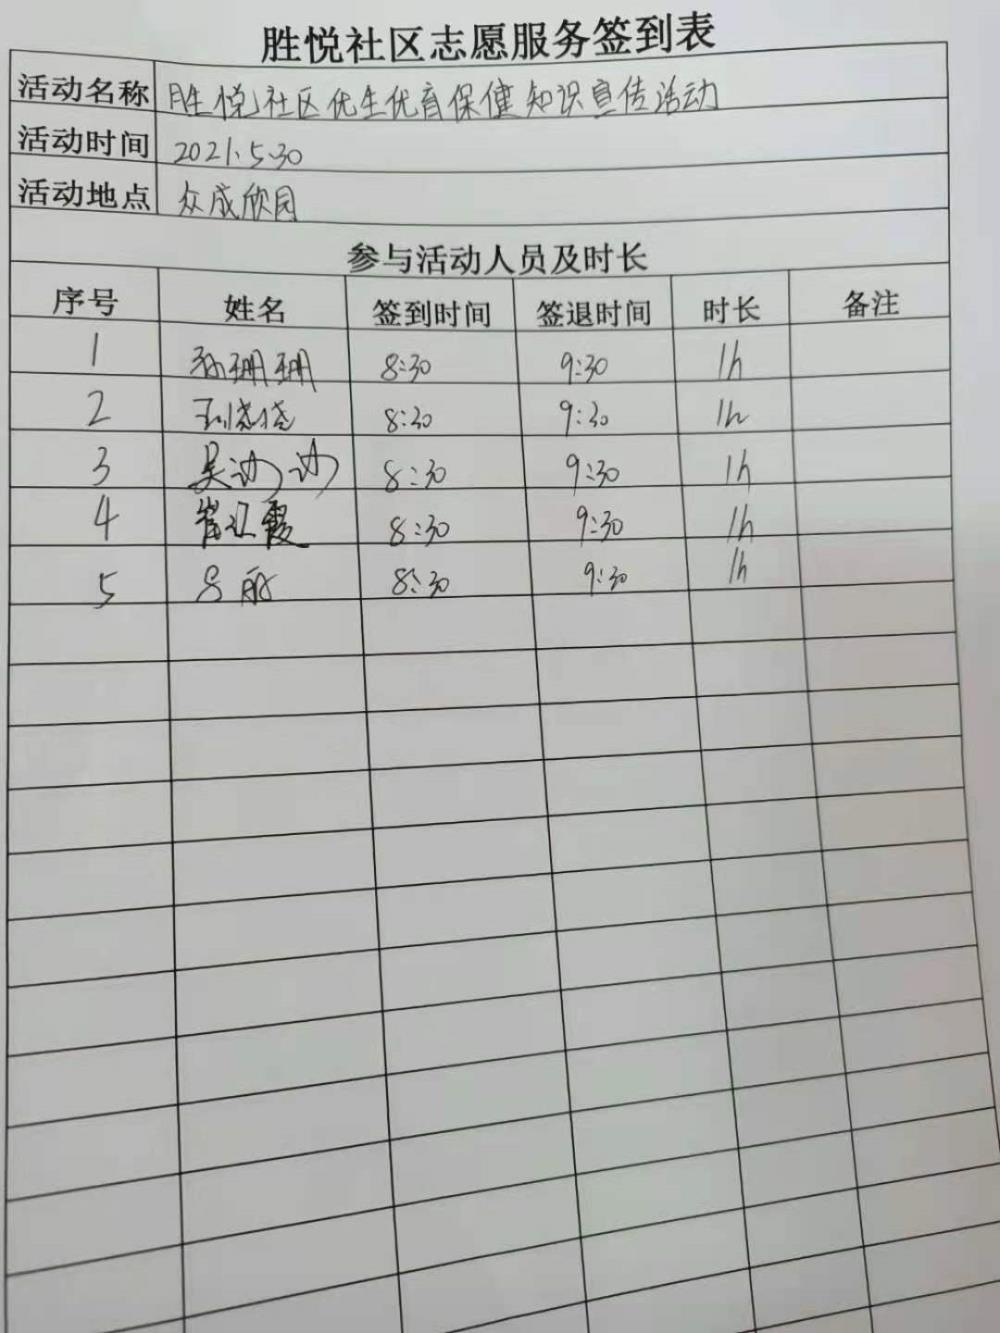 胜悦社区志愿服务签到表
活动名称 胜悦社区优生优育保健知识宣传活动
活动时间 2021.5.30
活动地点 众成欣园
参与活动人员及时长
序号 姓名 签到时间 签退时间 时长 备注
1 孙珊珊 8:30 9:30 1h
2 8:30 9:30 1h
3 吴 8:30 9:30 1h
4 崔 霞 8:30 9:30 1h
5 吕 8:30 9:30 1h